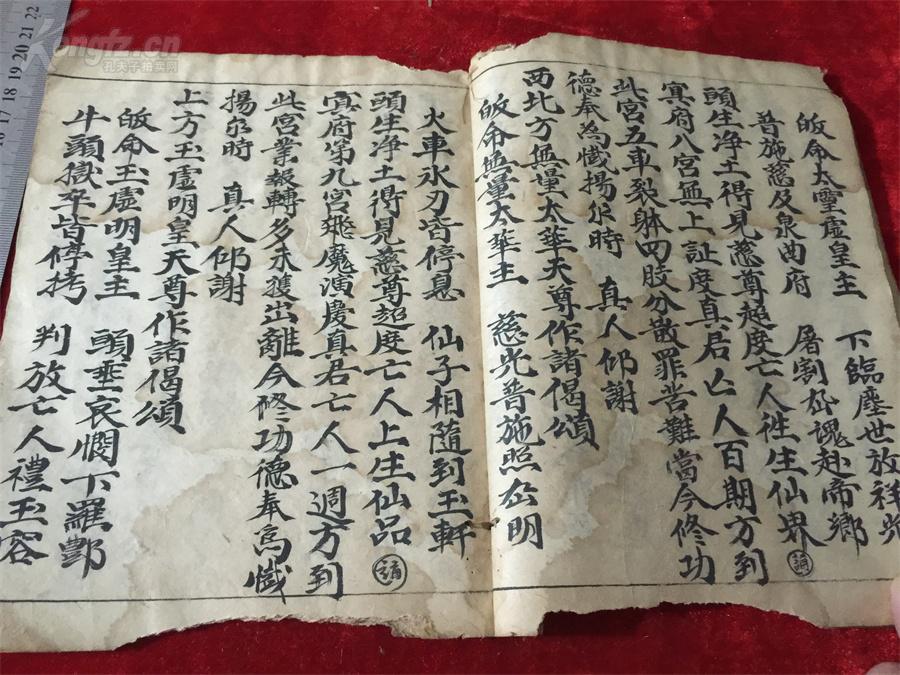 皈命太靈虛皇主　下臨塵世放祥光
普施慈及泉曲府　屠割孤魂赴帝鄉
頭生净土得見慈尊超度亡人徃生仙界
冥府八宮無上証度真君亡人百期方到
此宮五車裂躰四肢分散罪苦難當今修功
德奉為懺揚尔時　真人仰謝
西北方無量太華天尊作諸偈頌
皈命無量太華主　慈光普施照幽明
火車氷刃皆停息　仙子相隨到玉軒
頭生净土得見慈尊超度亡人上生仙品
冥府第九宮飛魔演慶真君亡人一週方到
此宮業報轉多未獲出離今修功德奉為懺
揚尔時　真人仰謝
上方玉虛明皇天尊作諸偈頌
皈命玉虛明皇主　頭垂哀憫下羅酆
牛頭獄卒皆停拷　判放亡人禮玉容
Kongfz.cn
孔夫子拍卖网
17 18 19 20 21 22